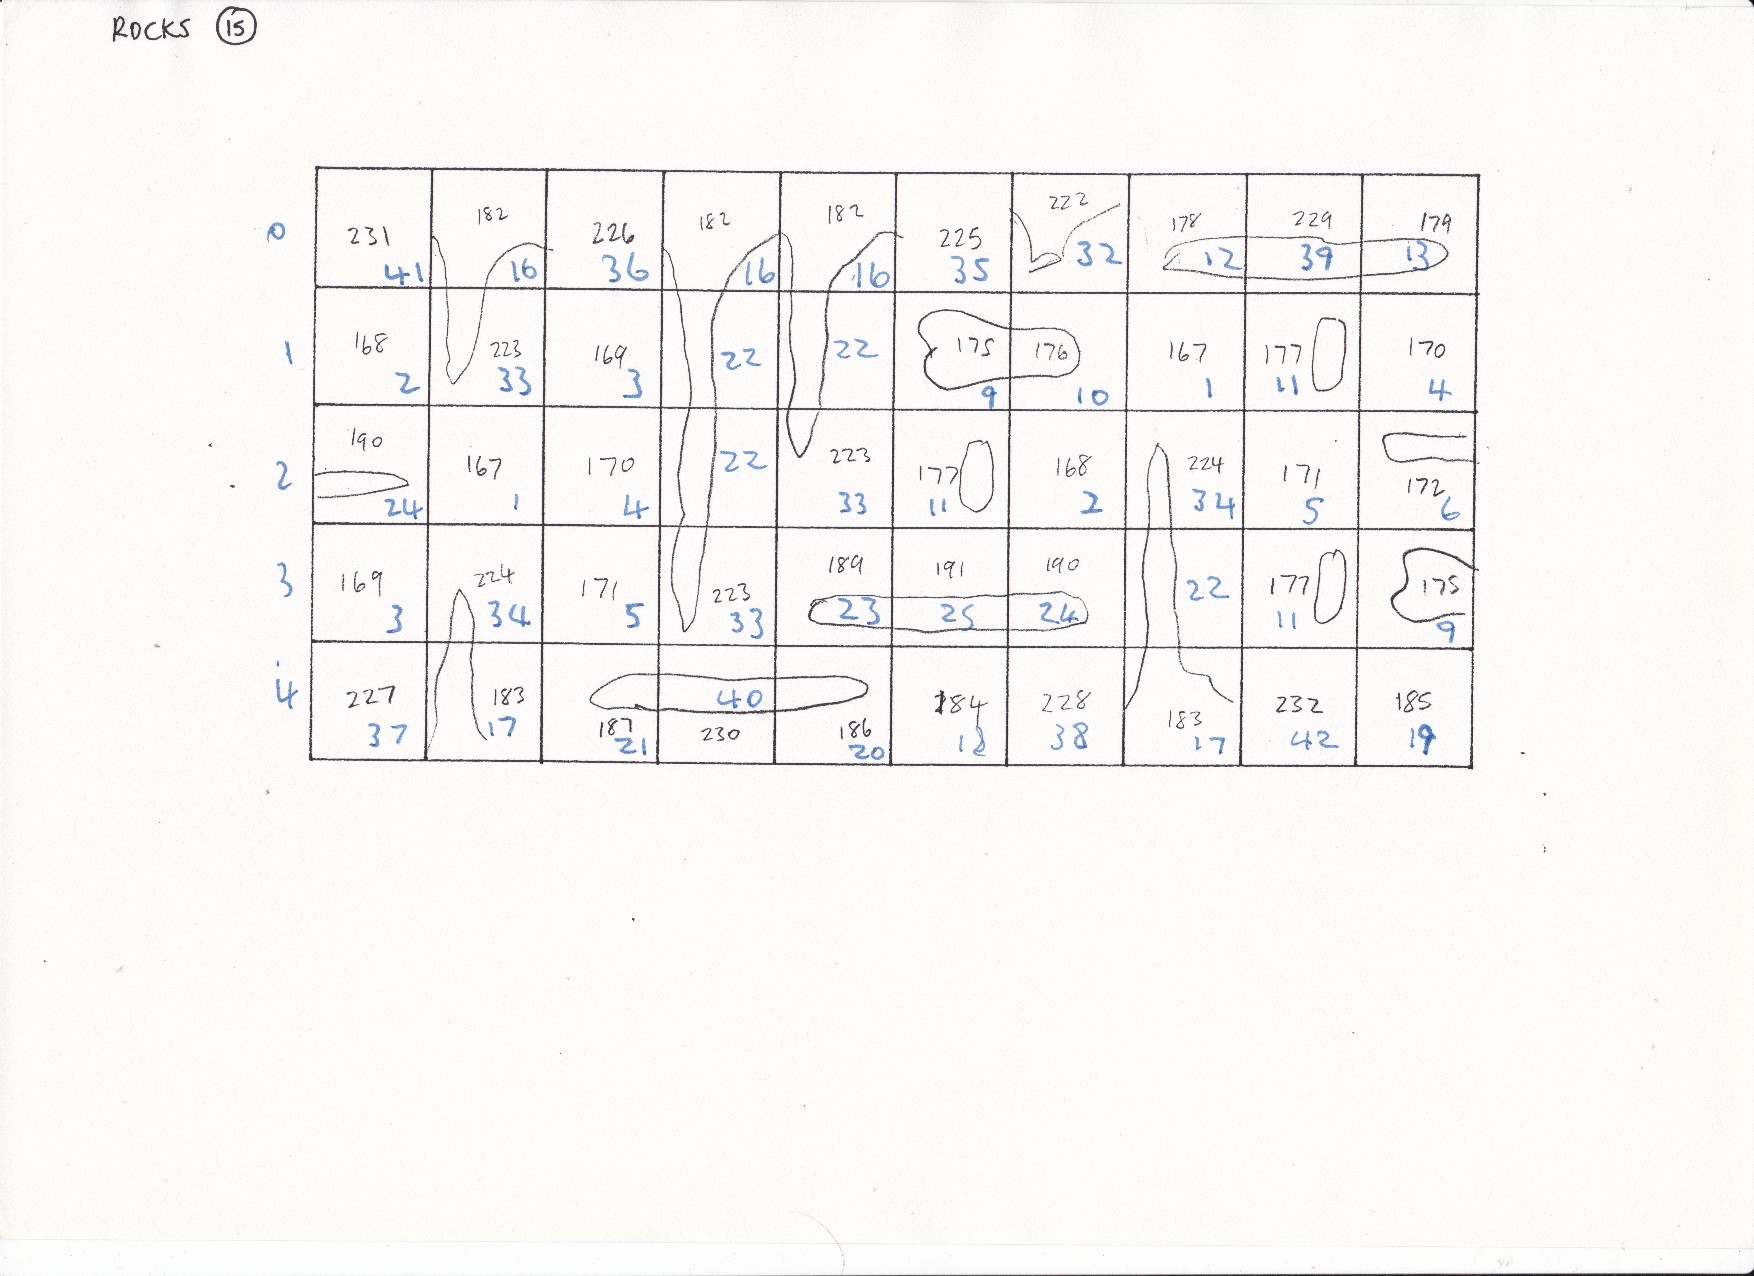 ROCKS 15
0 231 182 226 182 182 225 222 178 229 179
41 16 36 16 16 35 32 12 39 13
1 168 223 169 22 22 175 176 167 177 170
2 33 3 9 10 1 11 4
2 190 167 170 22 223 177 168 224 171 172
24 1 4 33 11 2 34 5 6
3 169 224 171 223 189 191 190 22 177 175
3 34 5 33 23 25 24 11 9
4 227 183 187 40 186 184 228 183 232 185
37 17 21 230 20 18 38 17 42 19